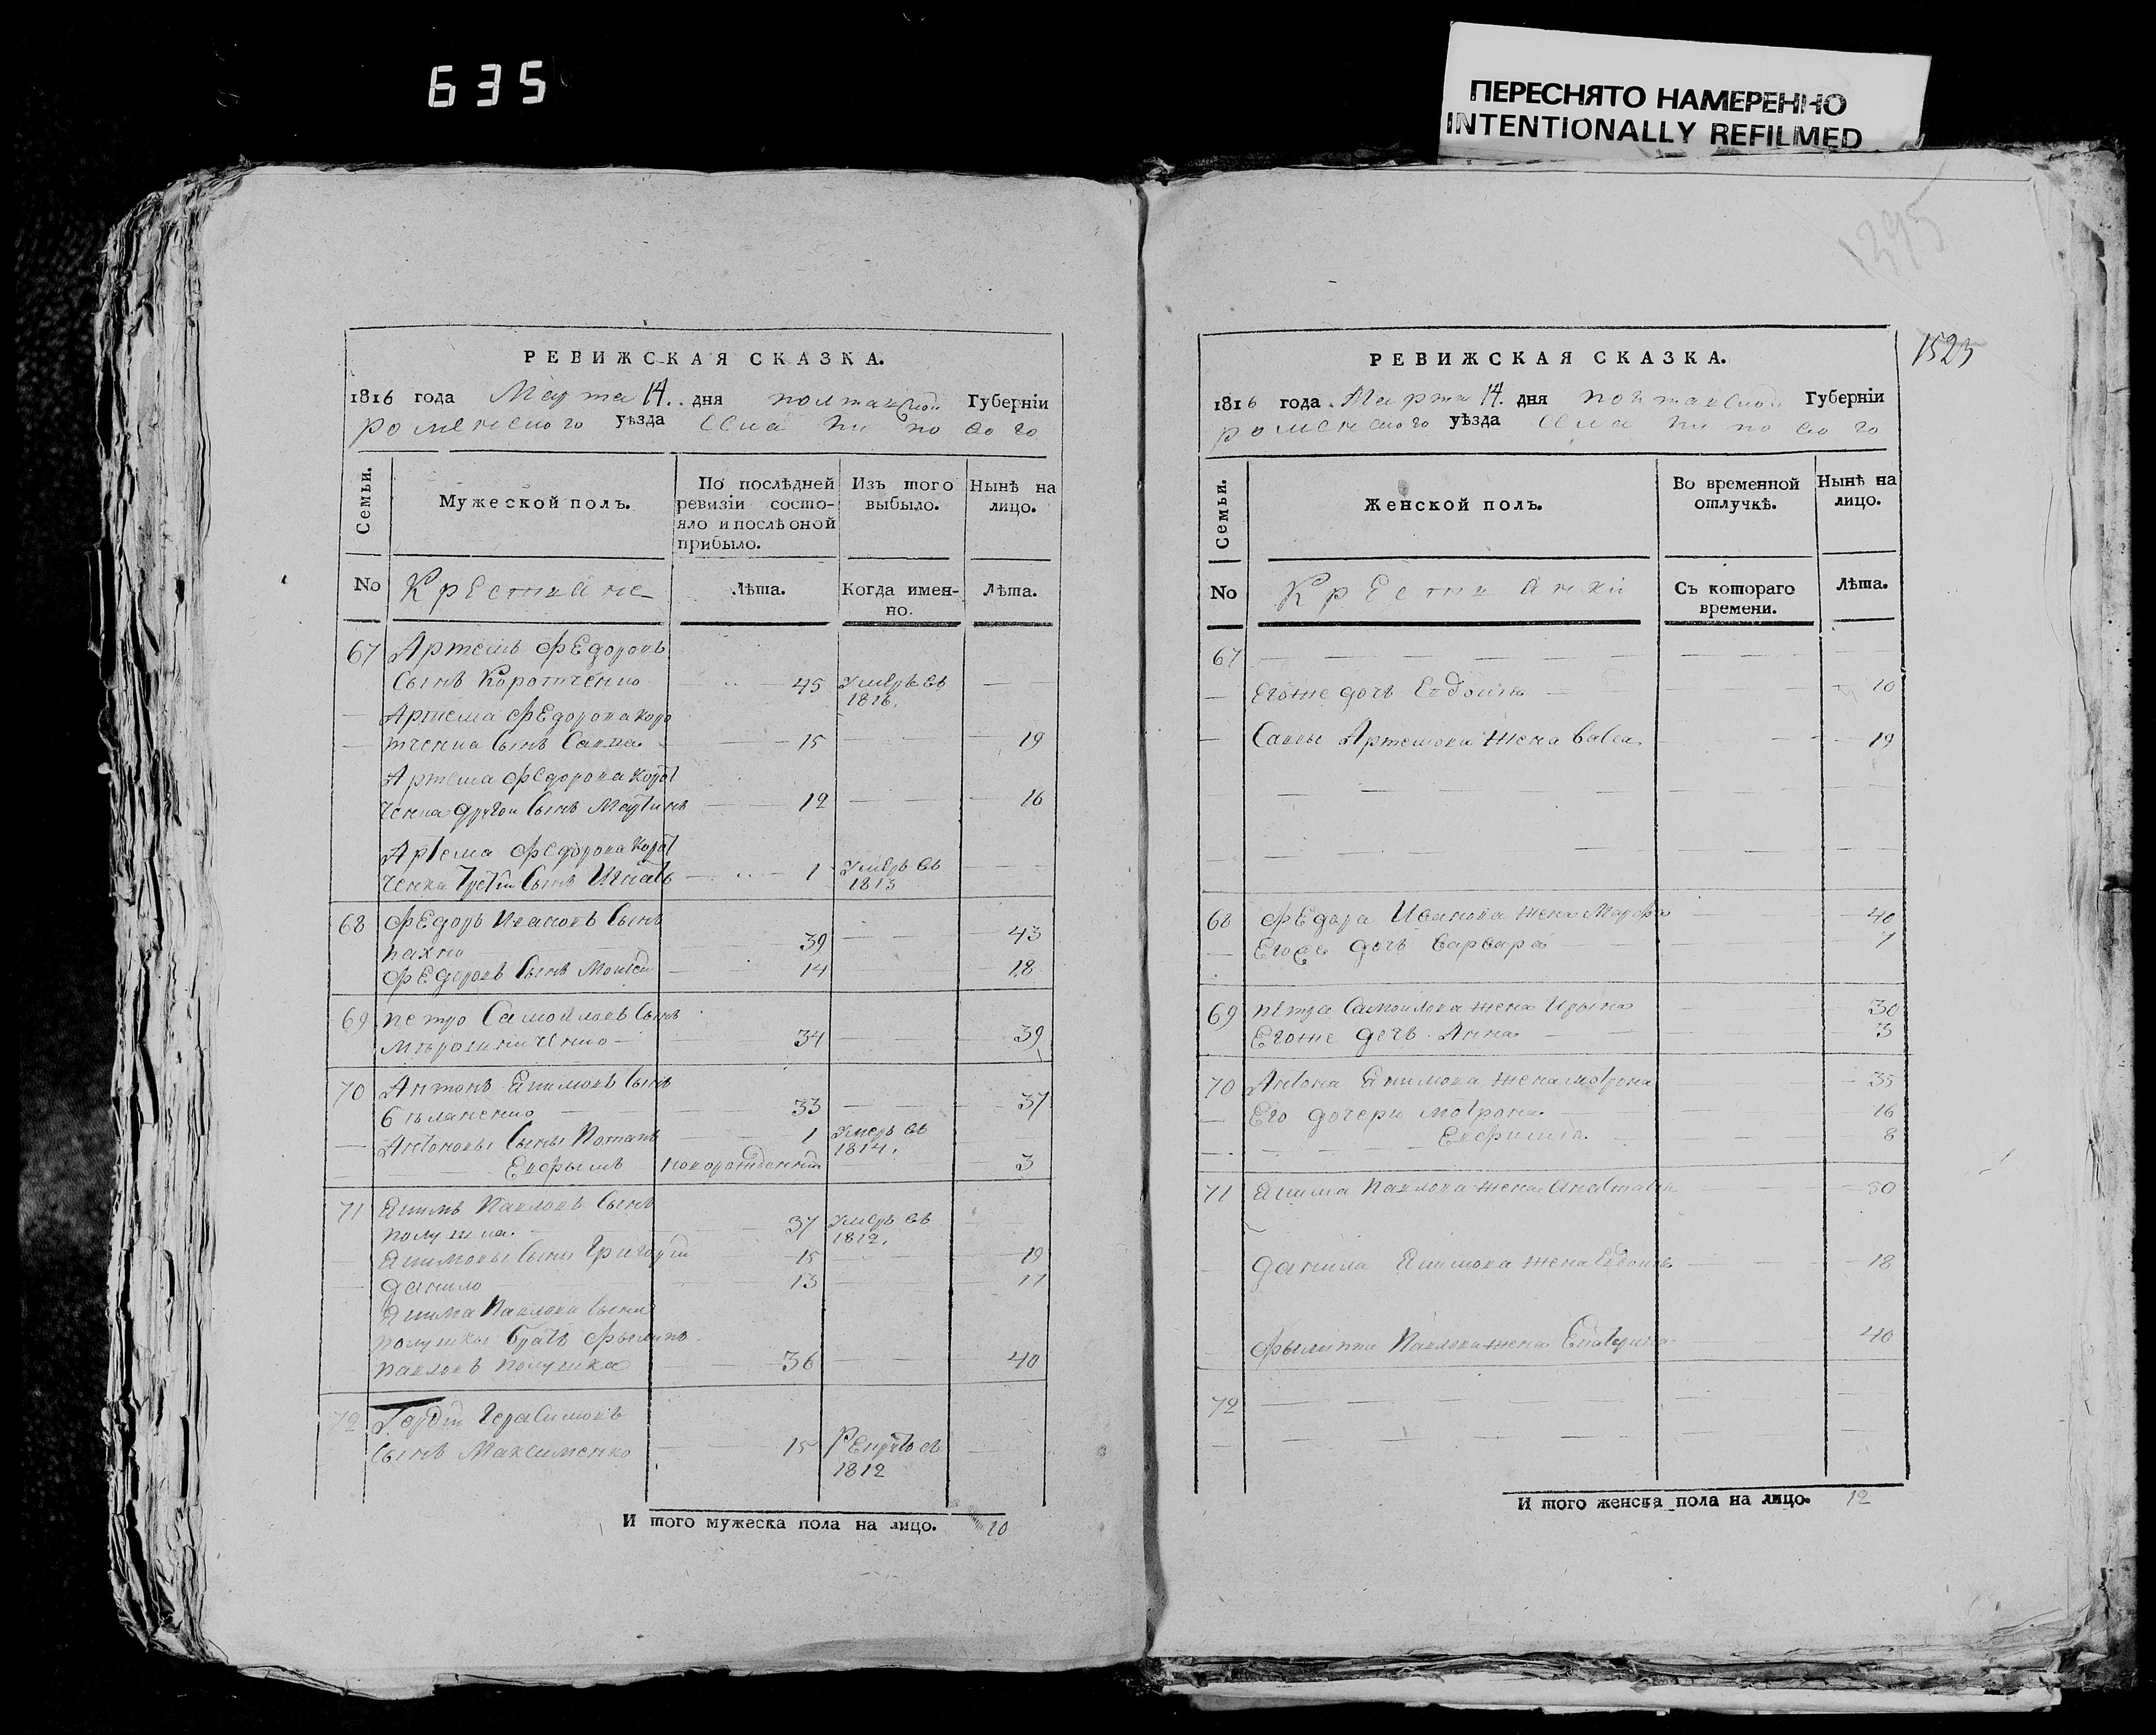 635
ПЕРЕСНЯТО НАМЕРЕННО
INTENTIONALLY REFILMED
1395
1523
РЕВИЖСКАЯ СКАЗКА.
1816 года Марта 14. дня полтавской Губерніи
роменского уѣзда села
Семьи.
Мужеской полъ.
По послѣдней ревизіи состо-
яло и послѣ оной
прибыло.
Изъ того выбыло.
Нынѣ на лицо.
No Крестьяне
Лѣта.
Когда имен-
но.
Лѣта.
67 Артемъ Федоровъ
Сынъ Коротченко 45 умеръ въ
1816.
Артема Федорова коро
тченка Сынъ Савва 15 19
Артема Федорова корот
ченка другои Сынъ Мартинъ 12 16
Артема Федорова корот
ченка Третiи Сынъ Игнатъ 1 умеръ въ
1813
68 Федоръ Ивановъ Сынъ
пахно 39 43
Федоровъ Сынъ Моисей 14 18
69 петро Самойловъ Сынъ
34 39
70 Антонъ Екимовъ Сынъ
бѣланенко 33 37
Антоновы Сыны Потапъ 1 умеръ въ
1814.
Евфымъ новорожденный 3
71 Екимъ Павловъ Сынъ
полушка 37 умеръ въ
1812.
Екимовы Сыни Григорій 15 19
данило 13 17
Екима Павлова Сына
полушки братъ Фылипъ
павловъ полушка 36 40
72 Гордiй Герасимовъ
Сынъ Максименко 15 рекрутъ съ
1812
И того мужеска пола на лицо. 10
РЕВИЖСКАЯ СКАЗКА.
1816 года Марта 14. дня полтавской Губерніи
роменского уѣзда села
Семьи.
Женской полъ.
Во временной
отлучкѣ.
Нынѣ на
лицо.
No Крестьянки
Съ котораго
времени.
Лѣта.
67
Егоже дочь Евдокия 10
Саввы Артемова жена 19
68 Федора Иванова жена Марфа 40
дочь варвара 7
69 петра Самоилова жена Ирына 30
Егоже дочь Анна 3
70 Антона Екимова жена мотрона 35
Его дочери мотрона 16
Евфимия 8
71 Екима Павлова жена Анастасия 50
данила Екимова жена Евдокия 18
Фылиппа Павлова жена Екатерина 40
72
И того женска пола на лицо. 12